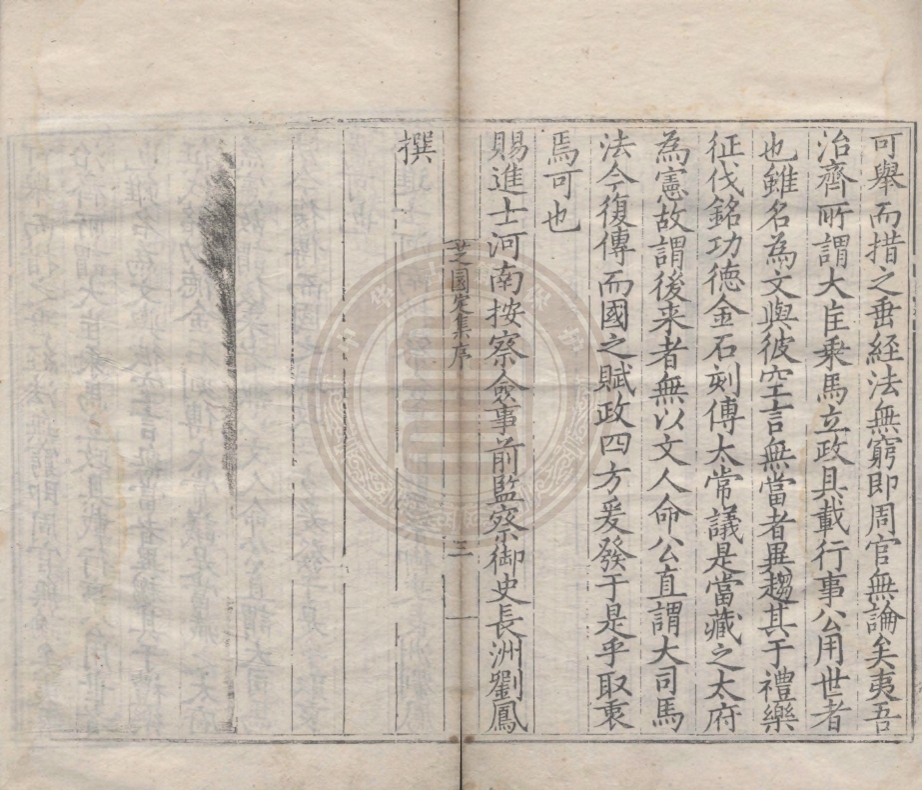 可舉而措之垂経法無窮即周官無論矣夷吾
治齊所謂大匡乗馬立政具載行事公用世者
也雖名為文與彼空言無當者異趨其于禮樂
征伐銘功德金石刻傳太常議是當藏之太府
為憲故謂後来者無以文人命公直謂大司馬
法今復傳而國之賦政四方爰發于是乎取衷
焉可也
賜進士河南按察僉事前監察御史長洲劉鳳
撰
芝園定集序
三